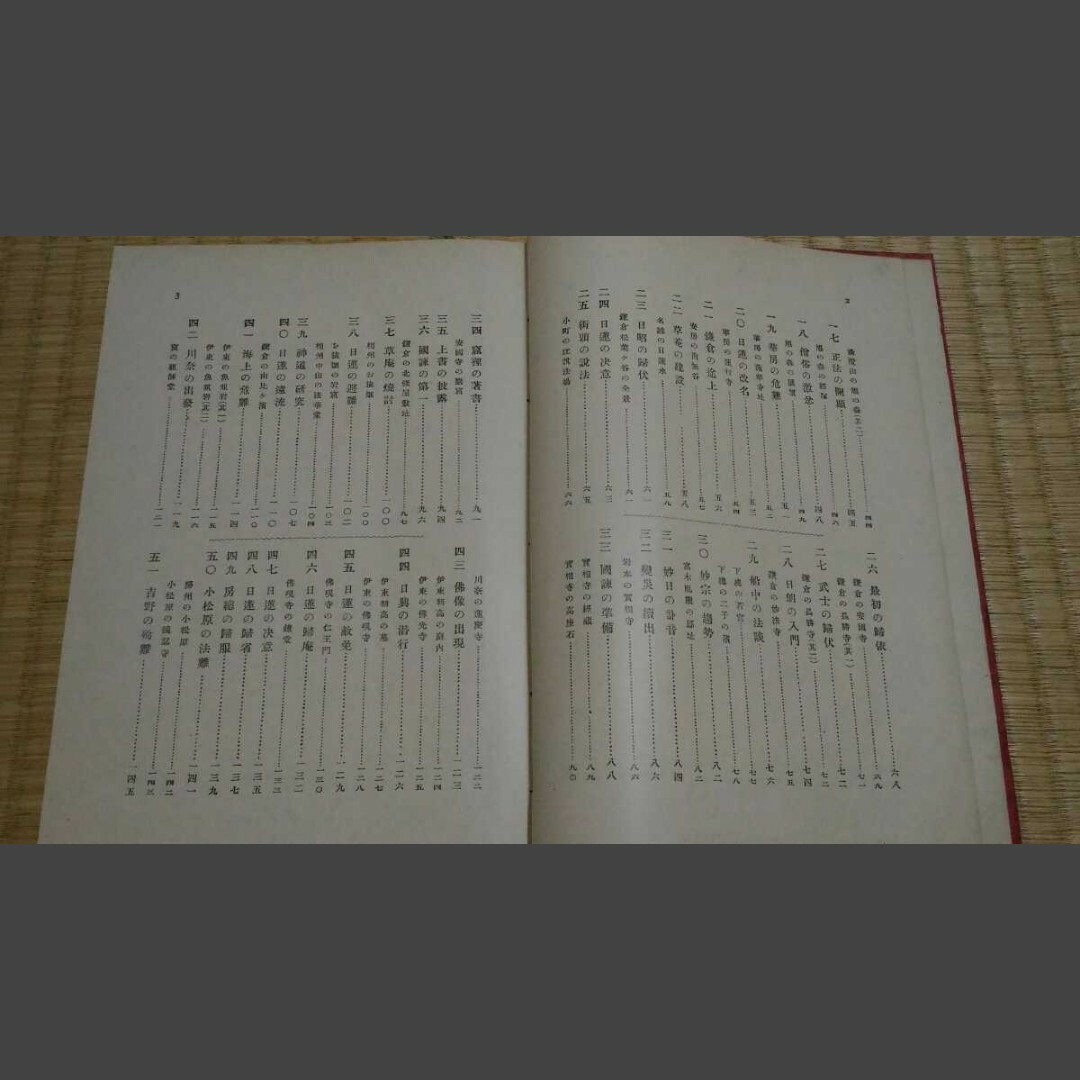 2
一七 正法の開顯……四五
一八 僧俗の激忿……四八
一九 華房の危難……五一
二〇 日蓮の改名……五三
華房の蓮行寺……五四
二一 鎌倉の途上……五六
二二 草菴の建設……五八
名越の日蓮水……五九
二三 日昭の歸伏……六一
鎌倉松葉ケ谷の全景……六一
二四 日蓮の決意……六三
二五 街頭の說法……六五
小町の辻說法場……六六
二六 最初の歸依……六八
鎌倉の安國寺……六九
鎌倉の長勝寺(其一)……七一
鎌倉の長勝寺(其二)……七二
二七 武士の歸伏……七二
二八 日朗の入門……七四
鎌倉の妙法寺……七五
二九 船中の法談……七六
下總の若宮……七七
下總の二子の浦……七八
三〇 妙宗の趨勢……八二
富木胤繼の邸址……八二
三一 妙日の訃音……八四
三二 變災の續出……八六
岩本の實相寺……八六
三三 國諫の準備……八八
實相寺の經藏……八九
實相寺の高座石……九〇
3
三四 窟裡の著書……九一
安國寺の窟宮……九二
三五 上書の披露……九四
三六 國諫の第一……九六
鎌倉の北條屋敷址……九七
三七 草庵の燒討……一〇〇
相州のお猿畠……一〇〇
三八 日蓮の避難……一〇二
お猿畠の岩窟……一〇三
相州中山の法華堂……一〇四
三九 神道の研究……一〇七
四〇 日蓮の遠流……一一〇
鎌倉の由比ケ濱……一一〇
四一 海上の危難……一一四
伊東の魚板岩(其一)……一一五
伊東の魚板岩(其二)……一一六
四二 川奈の出發……一一九
窟の祖師堂……一二一
川奈の蓮慶寺……一二二
四三 佛像の出現……一二三
伊東朝高の庭內……一二四
伊東の佛光寺……一二五
四四 日朗の潛行……一二六
伊東朝高の墓……一二七
伊東の佛現寺……一二八
四五 日蓮の赦免……一二九
佛現寺の仁王門……一三〇
四六 日蓮の歸庵……一三二
佛現寺の鐘堂……一三三
四七 日蓮の決意……一三五
四八 日蓮の歸省……一三五
四九 房總の歸服……一三七
五〇 小松原の法難……一三九
房州の小松原……一四一
小松原の鏡忍寺……一四二
五一 吉野の殉難……一四五